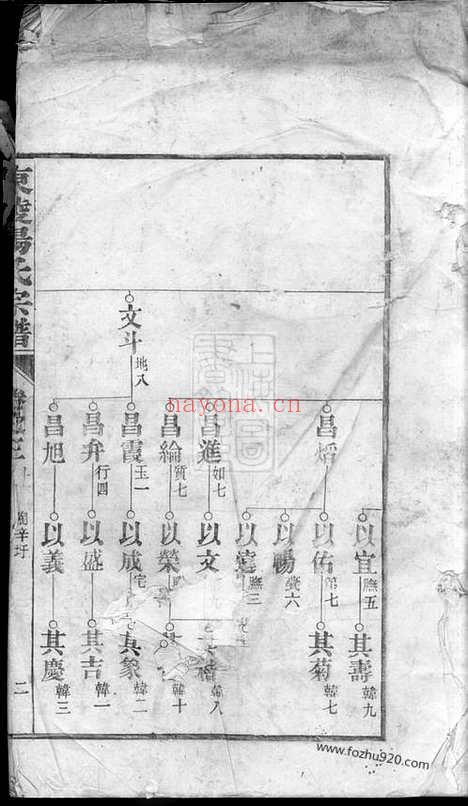 東陵楊氏宗譜
文斗
地八
昌
昌進
如七
昌綸
質七
昌霞
玉一
昌弁
行四
昌旭
以宜
膴五
以佑
弟七
以暢
以寔
膴三
以文
以榮
以成
以盛
以義
其壽
韓九
其菊
韓七
韓八
韓十
其象
韓二
其吉
韓一
其慶
韓三
二
nayona.cn
www.fozhu920.com